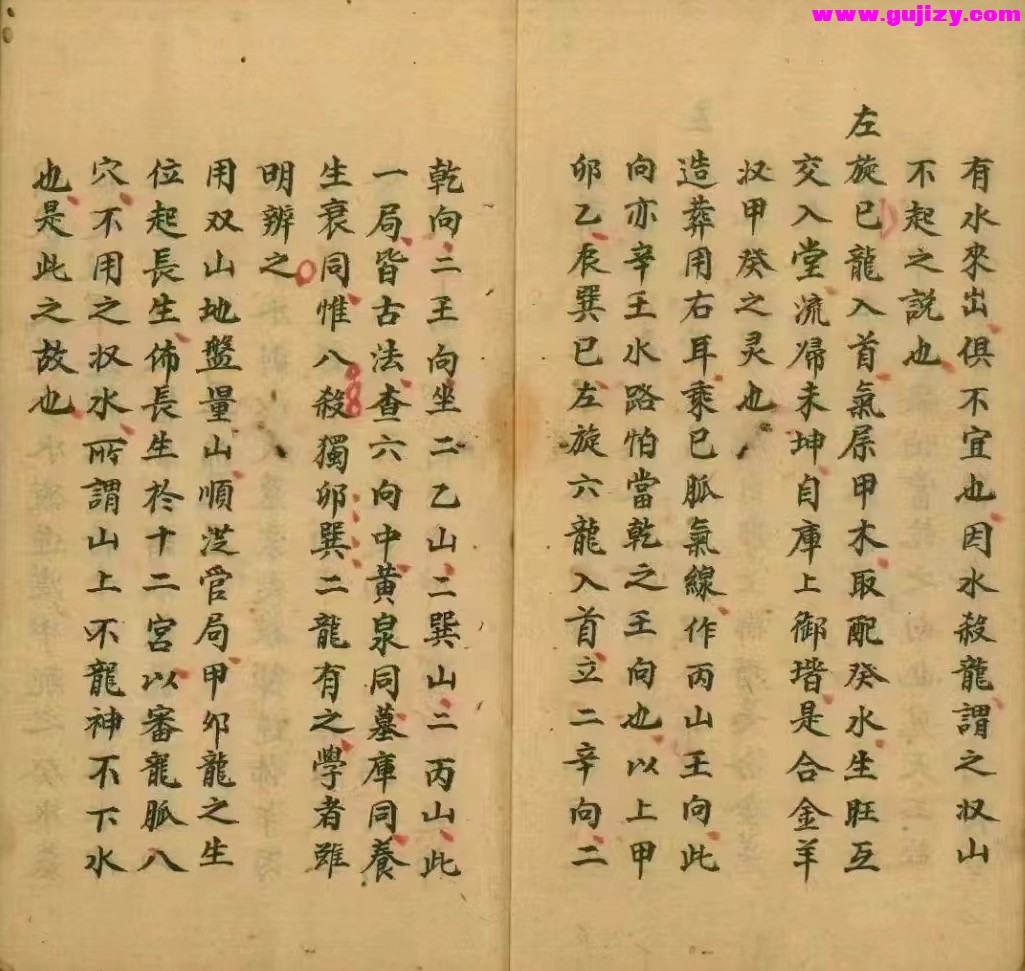 www.gujizy.com
有水來出俱不宜也因水殺龍謂之収山
不起之説也
左旋巳龍入首氣屬甲木取配癸水生旺互
交入堂流歸未坤自庫上御堦是合金羊
収甲癸之灵也
造葬用右耳乘巳脈氣線作丙山王向此
向亦辛王水路怕當乾之王向也以上甲
卯乙辰巽巳左旋六龍入首立二辛向二
乾向二王向坐二乙山二巽山二丙山此
一局皆古法查六向中黄泉同墓庫同養
生衰同惟八殺獨卯巽二龍有之學者雖
明辨之
用双山地盤量山順逆官局甲卯龍之生
位起長生佈長生於十二宮以審龍脈入
穴不用之収水所謂山上不龍神不下水
也是此之故也